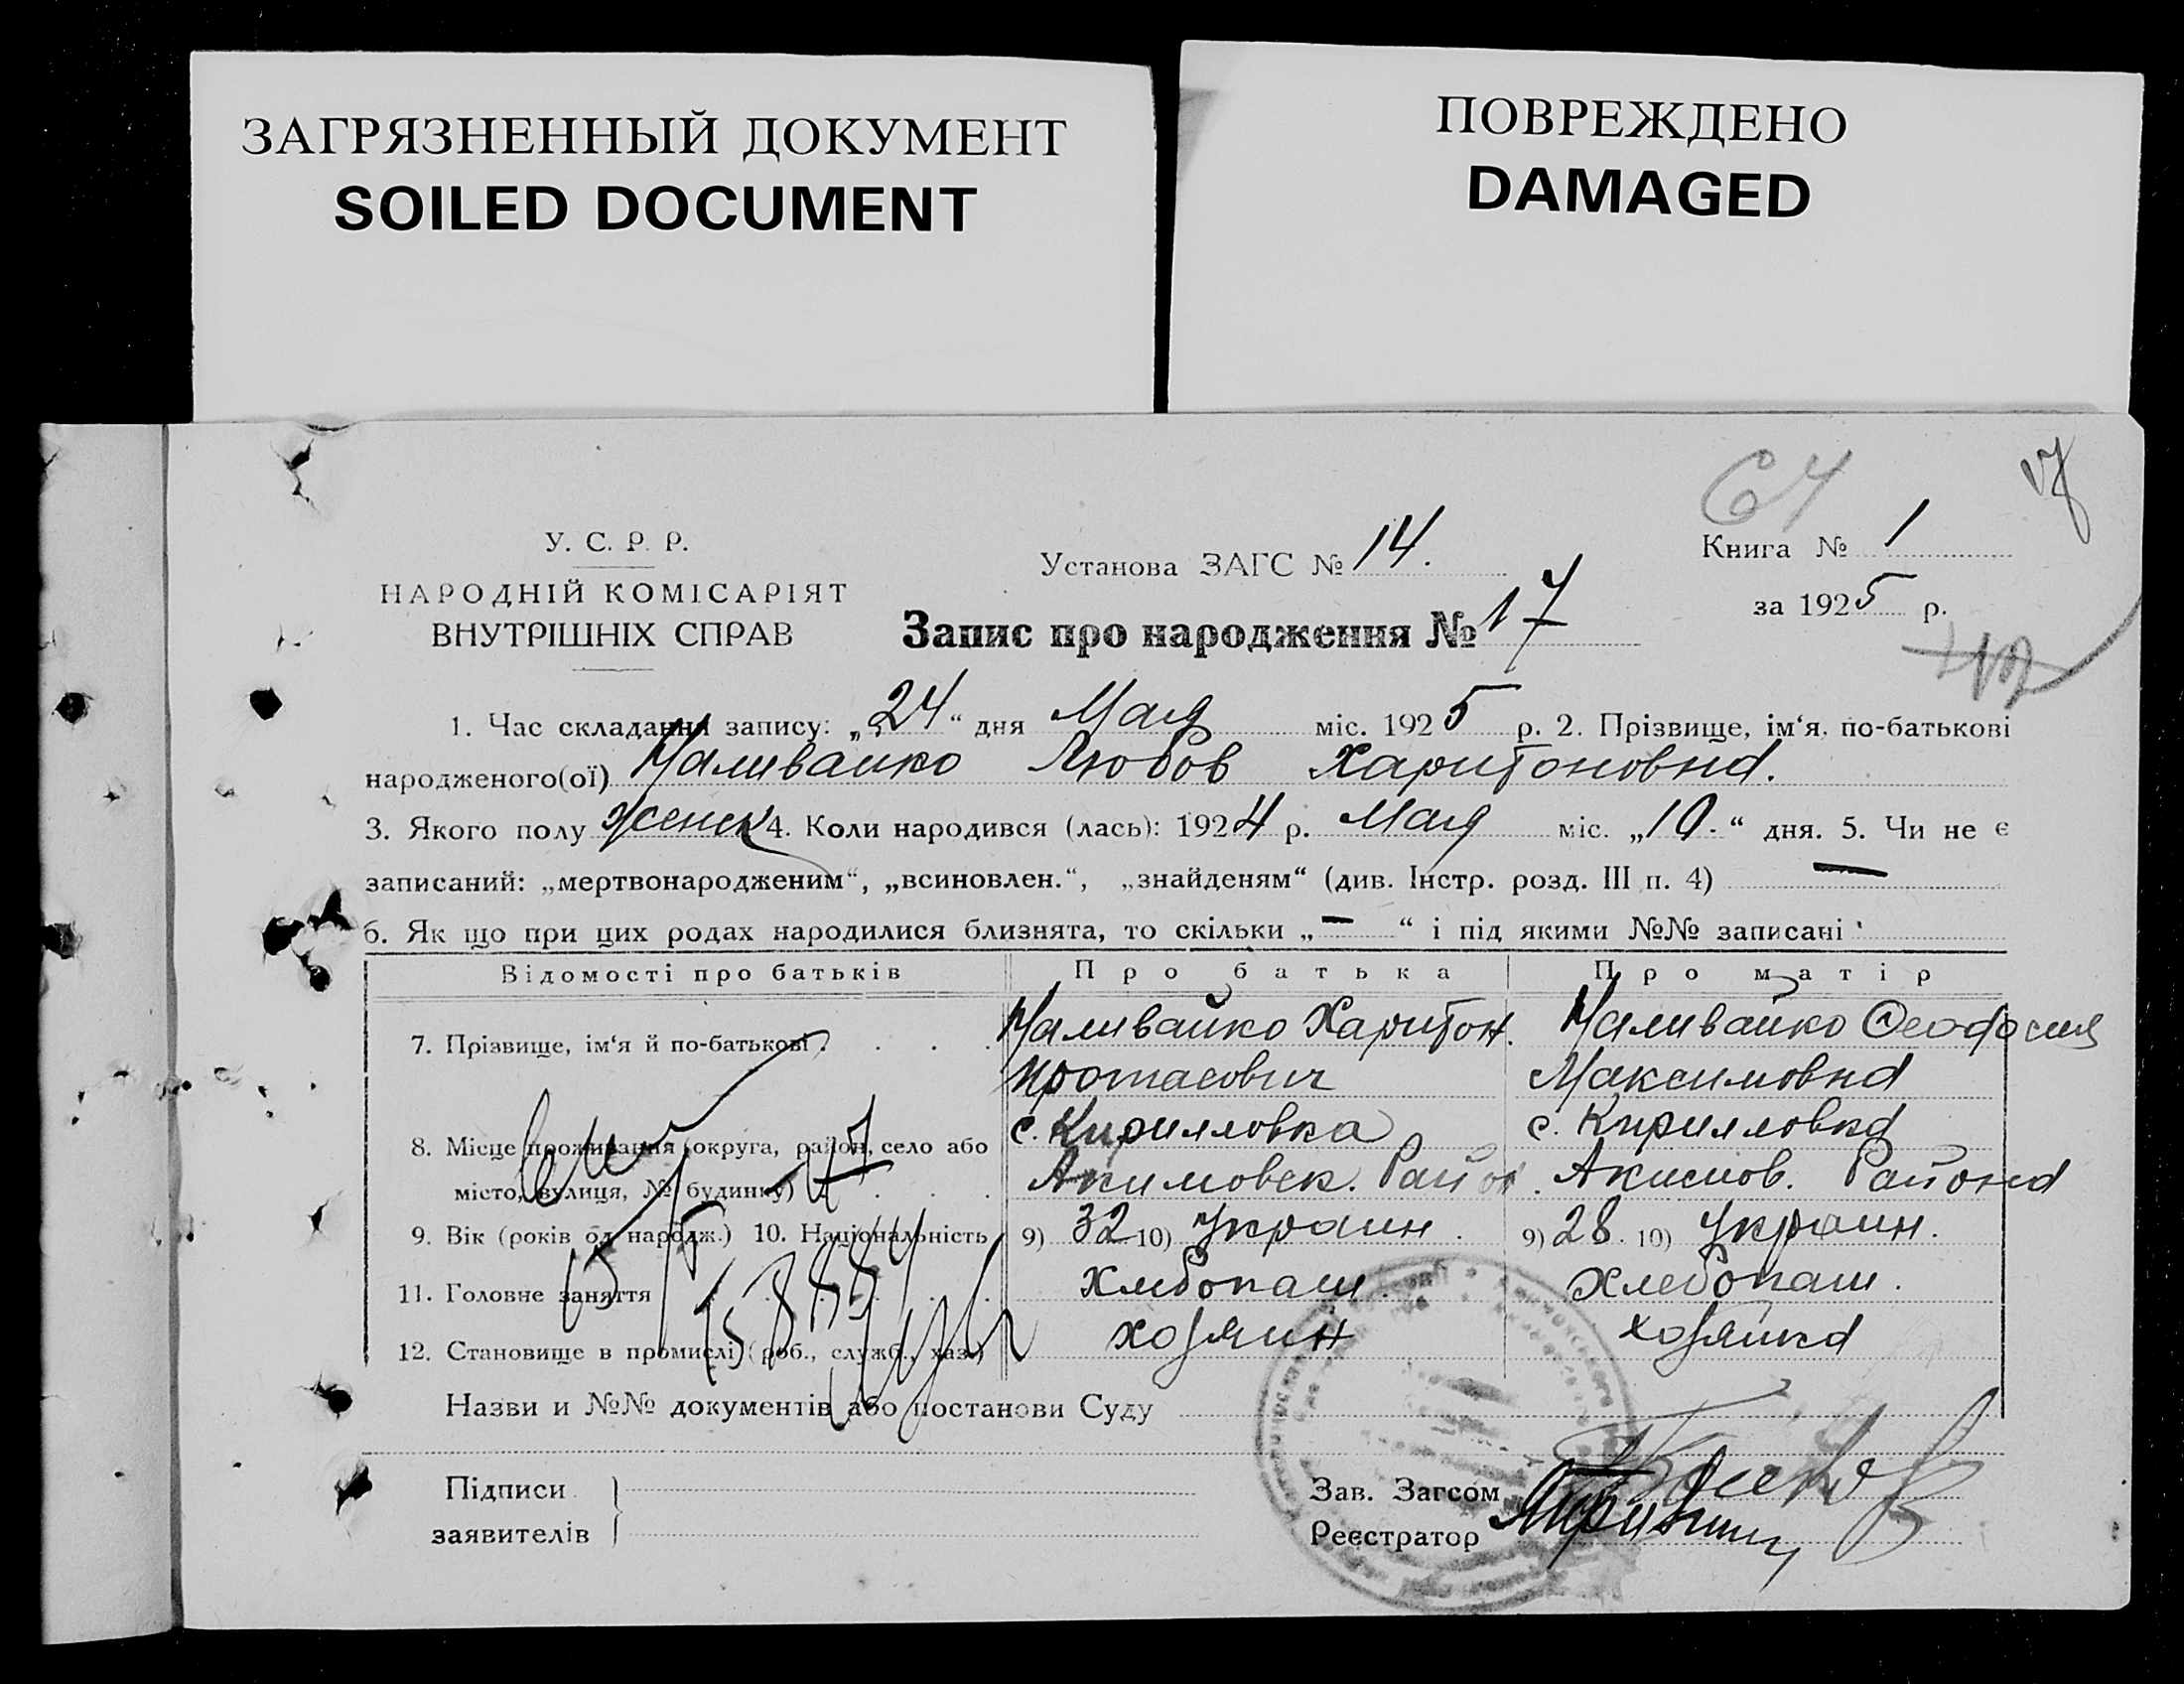 ЗАГРЯЗНЕННЫЙ ДОКУМЕНТ
SOILED DOCUMENT
ПОВРЕЖДЕНО
DAMAGED
64
17
У. С. Р. Р.
НАРОДНІЙ КОМІСАРІЯТ
ВНУТРІШНІХ СПРАВ
Установа ЗАГС № 14.
Книга № 1
за 1925 р.
Запис про народження № 17
1. Час складання запису: „24“ дня Мая міс. 1925 р. 2. Прізвище, ім‘я, по-батькові
народженого(ої) Наливайко Любов Харитоновна.
3. Якого полу женск 4. Коли народився (лась): 1924 р. Мая міс. „10.“ дня. 5. Чи не є
записаний: „мертвонародженим“, „всиновлен.“, „знайденям“ (див. Інстр. розд. III п. 4) —
6. Як що при цих родах народилися близнята, то скільки „—“ і під якими №№ записані
Відомості про батьків Про батька Про матір
7. Прізвище, ім‘я й по-батькові . . . . Наливайко Харитон. Наливайко Феодосия
Протасович Максимовна
8. Місце проживання (округа, район, село або с. Кирилловка с. Кирилловка
місто, вулиця, № будинку) . . . Акимовск. Район. Акимов. Района
9. Вік (років од народж.) 10. Національність 9) 32 10) Украин. 9) 28. 10) Украин.
11. Головне заняття . . . . Хлебопаш. Хлебопаш.
12. Становище в промислі (роб., служб., хаз.) хозяин хозяйка
Назви и №№ документів або постанови Суду
Підписи
заявителів
Зав. Загсом
Реєстратор